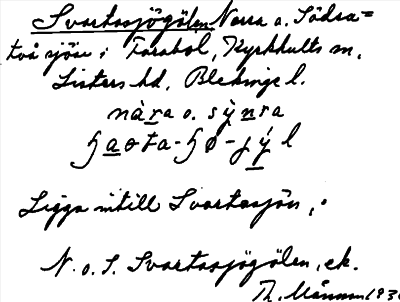 Svartasjögölen Norra o. Södra =
två sjöar i Farabol, Kyrkhults sn,
Listers hd, Blekinge l.
nà̱ra o. sỳnra
Ligga intill Svartasjön,
N. o. S. Svartasjögölen, ek.
Th. Månsson 193